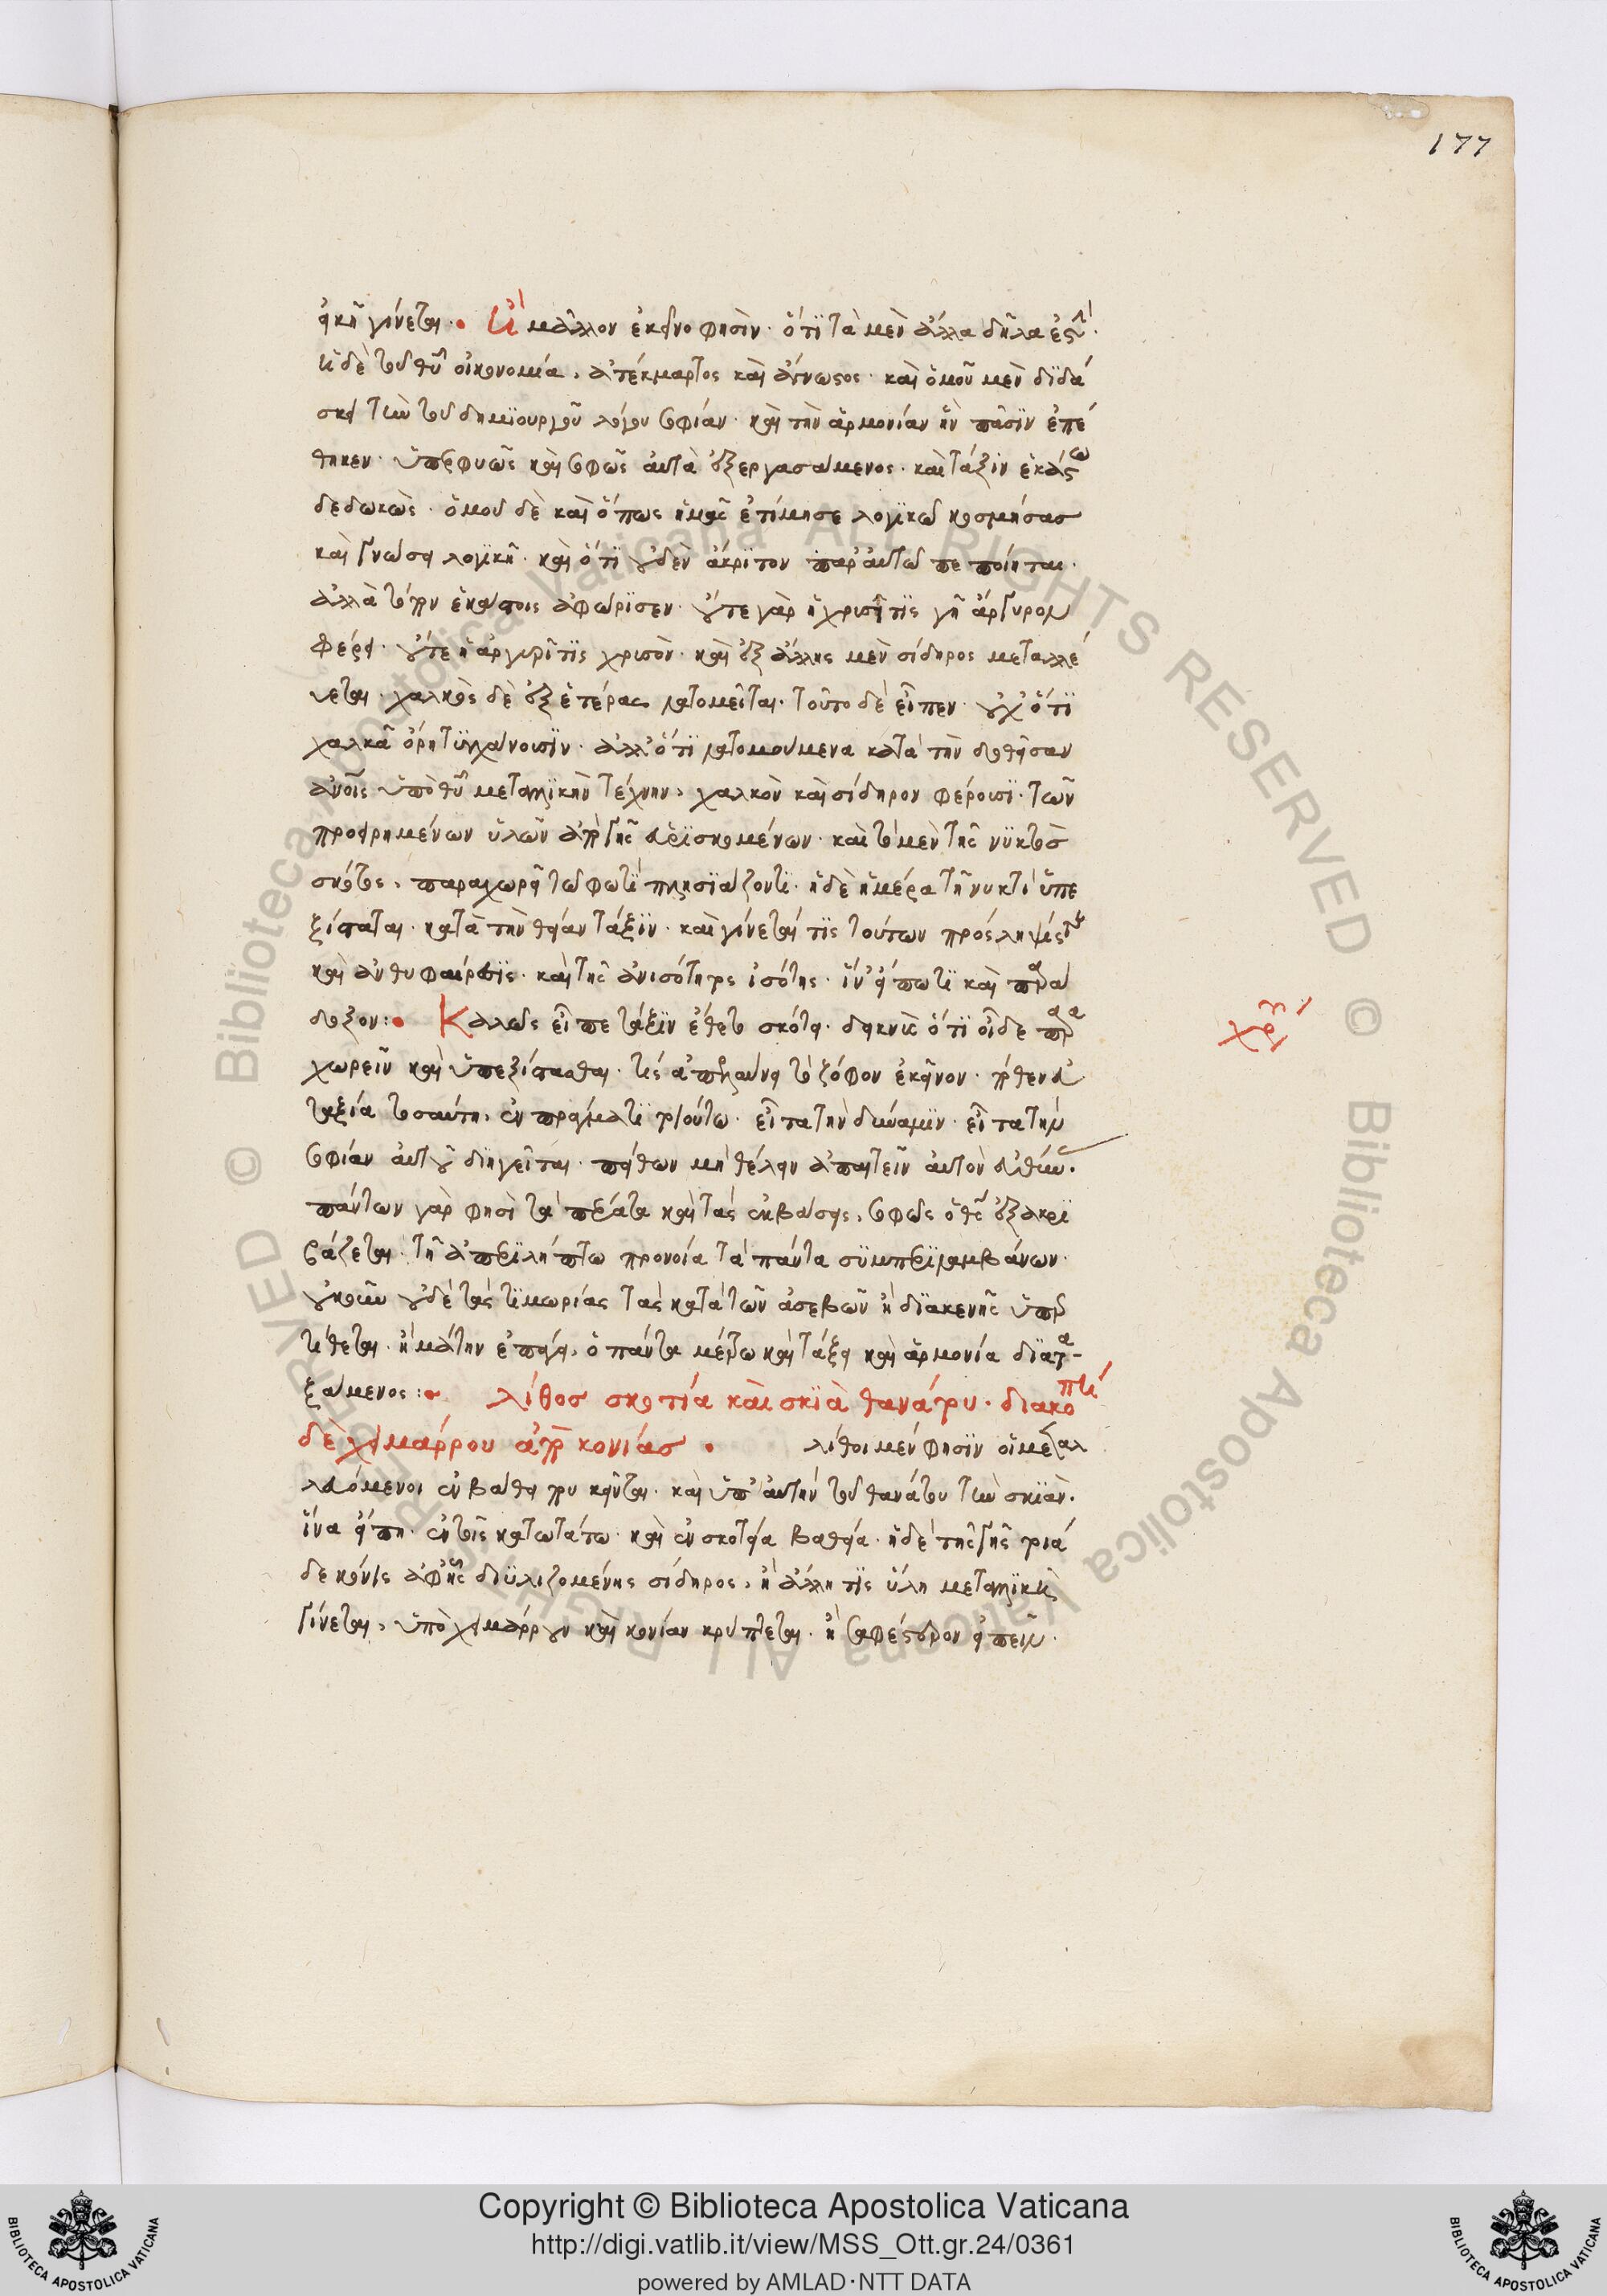 177
εἰκῆ γίνεται. Ἢ μᾶλλον ἐκεῖνο φησὶν· ὅτι τὰ μὲν ἄλλα δῆλα ἐστὶ·
ἡ δὲ τοῦ θυ οἰκονομία, ἀτέκμαρτος καὶ ἄγνωστος· καὶ ὁμοῦ μὲν διδά
σκει τὴν τοῦ δημιουργοῦ λόγου σοφίαν· καὶ τὴν ἁρμονίαν ἣν πᾶσιν ἐπέ
θηκεν· ὑπερφυῶς καὶ σοφῶς αὐτὰ ἐξεργασάμενος· καὶ τάξιν ἑκάστω
δεδωκὼς· ὁμοῦ δὲ καὶ ὅπως ἡμᾶς ἐτίμησε λογικῶ κοσμήσας
καὶ γνώσει λογικῆ· καὶ ὅτι οὐδὲν ἄκριτον παρ' αὐτῶ πεποίηται·
ἀλλὰ τόπον ἑκάστοις ἀφώρισεν· οὔτε γὰρ ἡ χρισῖτις γῆ ἄργυρον
φέρει· οὔτε ἡ ἀργυρῖτις χρισὸν· καὶ ἐξ ἄλλης μὲν σίδηρος μεταλλέ
υεται· χαλκὸς δὲ ἐξ ἑτέρας λατομεῖται· τοῦτο δὲ εἶπεν· οὐχ' ὅτι
χαλκᾶ ὄρη τυγχάνουσιν· ἀλλ' ὅτι λατομούμενα κατὰ τὴν δοθεῖσαν
ἀνοις ὑπὸ θυ μεταλλικὴν τέχνην, χαλκὸν καὶ σίδηρον φέρουσι· τῶν
προειρημένων ὑλῶν ἀπὸ γῆς εὑρισκομένων· καὶ τὸ μὲν τῆς νυκτὸς
σκότος, παραχωρεῖ τῶ φωτὶ πλησιάζοντι· ἡ δὲ ἡμέρα τῆ νυκτὶ ὑπε
ξίσταται· κατὰ τὴν θείαν τάξιν· καὶ γίνεταί τις τούτων πρόσληψίς
καὶ ἀνθυφαίρεσις· καὶ τῆς ἀνισότητος ἰσότης· ἵν' εἴπω τι καὶ παρά
δοξον: Καλῶς εἶπε τάξιν ἔθετο σκότει· δεικνὺς ὅτι οἶδε παρα
χωρεῖν καὶ ὑπεξίστασθαι· τίς ἀπελαύνει τὸ ζόφον ἐκεῖνον· πόθεν εὐ
ταξία τοσαύτη, ἐν πράγματι τοιούτω· εἶτα τὴν δύναμιν· εἶτα τὴν
σοφίαν αὐτοῦ διηγεῖται· πείθων μὴ θέλειν ἀπαιτεῖν αὐτὸν εὐθύν·
πάντων γὰρ φησὶ τὰ πέρατα καὶ τὰς ἐκβάσεις, σοφῶς ὁ θς ἐξακρι
βάζεται· τῆ ἀπεριλήπτω προνοία τὰ πάντα συμπεριλαμβάνων·
οὐκοῦν οὐδὲ τὰς τιμωρίας τὰς κατὰ τῶν ἀσεβῶν ἢ διακενῆς ὑπερ
τίθεται· ἢ μάτην ἐπάγει, ὁ πάντα μέτρω καὶ τάξει καὶ ἁρμονία διατα-
ξάμενος: λίθος σκοτία καὶ σκιὰ θανάτου· διακοπὴ
δὲ χειμάρρου ἀπὸ κονίας. λίθοι μὲν φησὶν οἱ μεταλ
λευόμενοι ἐν βάθει που κεῖνται· καὶ ὑπ' αὐτὴν τοῦ θανάτου τὴν σκιὰν·
ἵνα εἴπη· ἐν τοῖς κατωτάτω· καὶ ἐν σκοτεία βαθεία· ἡ δὲ τῆς γῆς τοιά
δε κόνις ἀφ' ἧς διϋλιζομένης σίδηρος, ἢ ἄλλη τις ὕλη μεταλλικὴ
γίνεται, ὑπὸ χειμάρρουν καὶ κονίαν κρύπτεται· ἢ σαφέστερον εἰπεῖν·
Copyright © Biblioteca Apostolica Vaticana
http://digi.vatlib.it/view/MSS_Ott.gr.24/0361
powered by AMLAD·NTT DATA